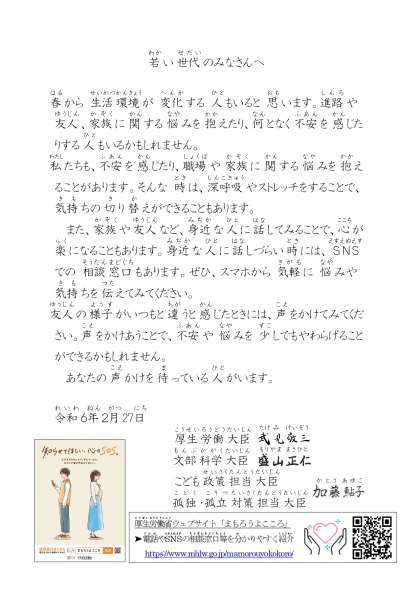 若い世代のみなさんへ
春から生活環境が変化する人もいると思います。進路や
友人、家族に関する悩みを抱えたり、何となく不安を感じた
りする人もいるかもしれません。
私たちも、不安を感じたり、職場や家族に関する悩みを抱え
ることがあります。そんな時は、深呼吸やストレッチをすることで、
気持ちの切り替えができることもあります。
また、家族や友人など、身近な人に話してみることで、心が
楽になることもあります。身近な人に話しづらい時には、SNS
での相談窓口もあります。ぜひ、スマホから気軽に悩みや
気持ちを伝えてみてください。
友人の様子がいつもと違うと感じたときには、声をかけてみてくだ
さい。声をかけあうことで、不安や悩みを少しでもやわらげること
ができるかもしれません。
あなたの声かけを待っている人がいます。
令和6年2月27日
厚生労働大臣 武見敬三
文部科学大臣 盛山正仁
こども政策担当大臣
孤独・孤立対策担当大臣 加藤鮎子
知らせてほしい、心のSOS。
厚生労働省ウェブサイト「まもろうよこころ」
➤電話やSNSの相談窓口等を分かりやすく紹介
https://www.mhlw.go.jp/mamorouyokokoro/